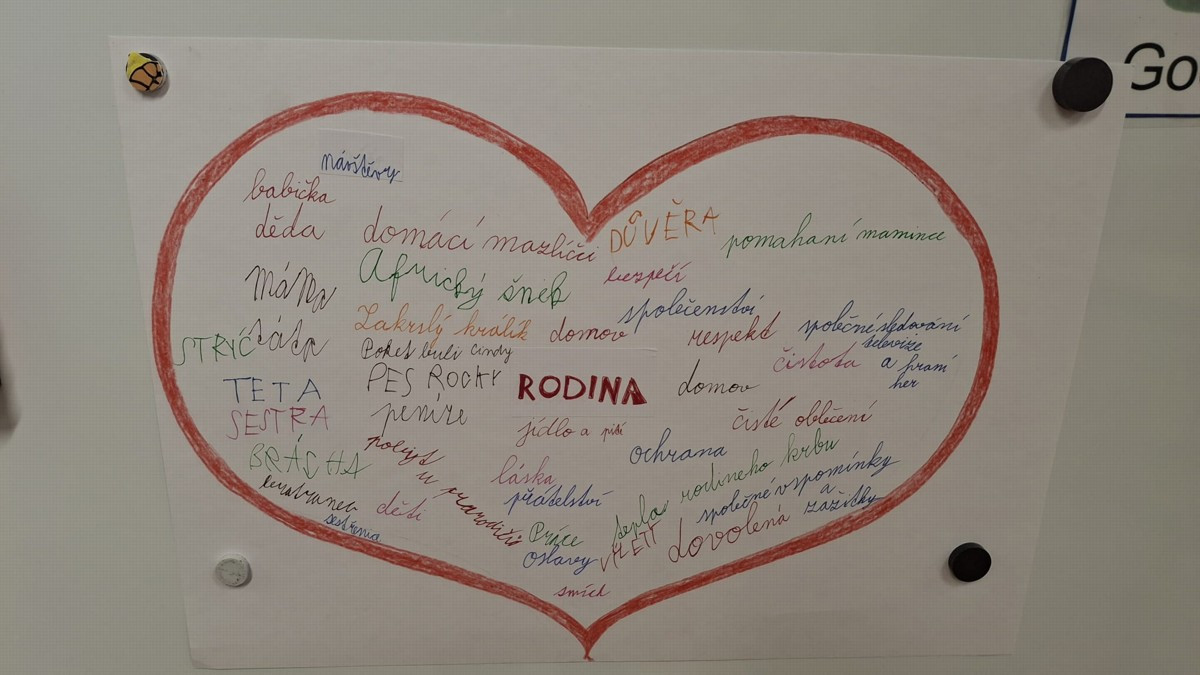 Go
návštěvy
babička
děda
máma
táta
STRÝČ
TETA
SESTRA
BRÁCHA
bratranec
sestřenia
domácí mazlíčci
Africký šnek
Zakrslý králík
Poket buli Cindy
PES ROCKY
peníze
pobyt
u prarodičů
děti
DŮVĚRA
bezpečí
společenství
domov
respekt
RODINA
domov
jídlo a pití
láska
přátelství
Práce
Oslavy
smích
pomahaní mamince
společné sledování
televize
a hraní
her
čistota
čisté oblečení
ochrana
teplo rodineho krbu
společné vspomínky
a
zážitky
VÝLETY
dovolená